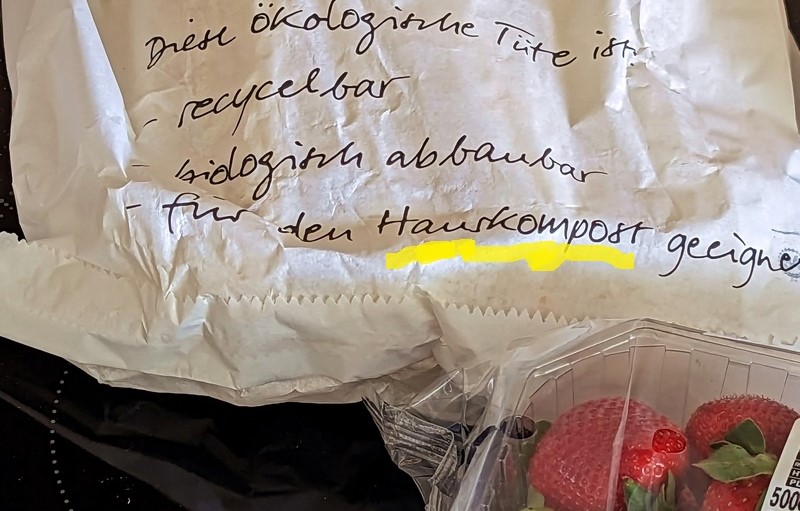 Diese ökologische Tüte ist:
- recycelbar
- biologisch abbaubar
- für den Hauskompost geeigne
500